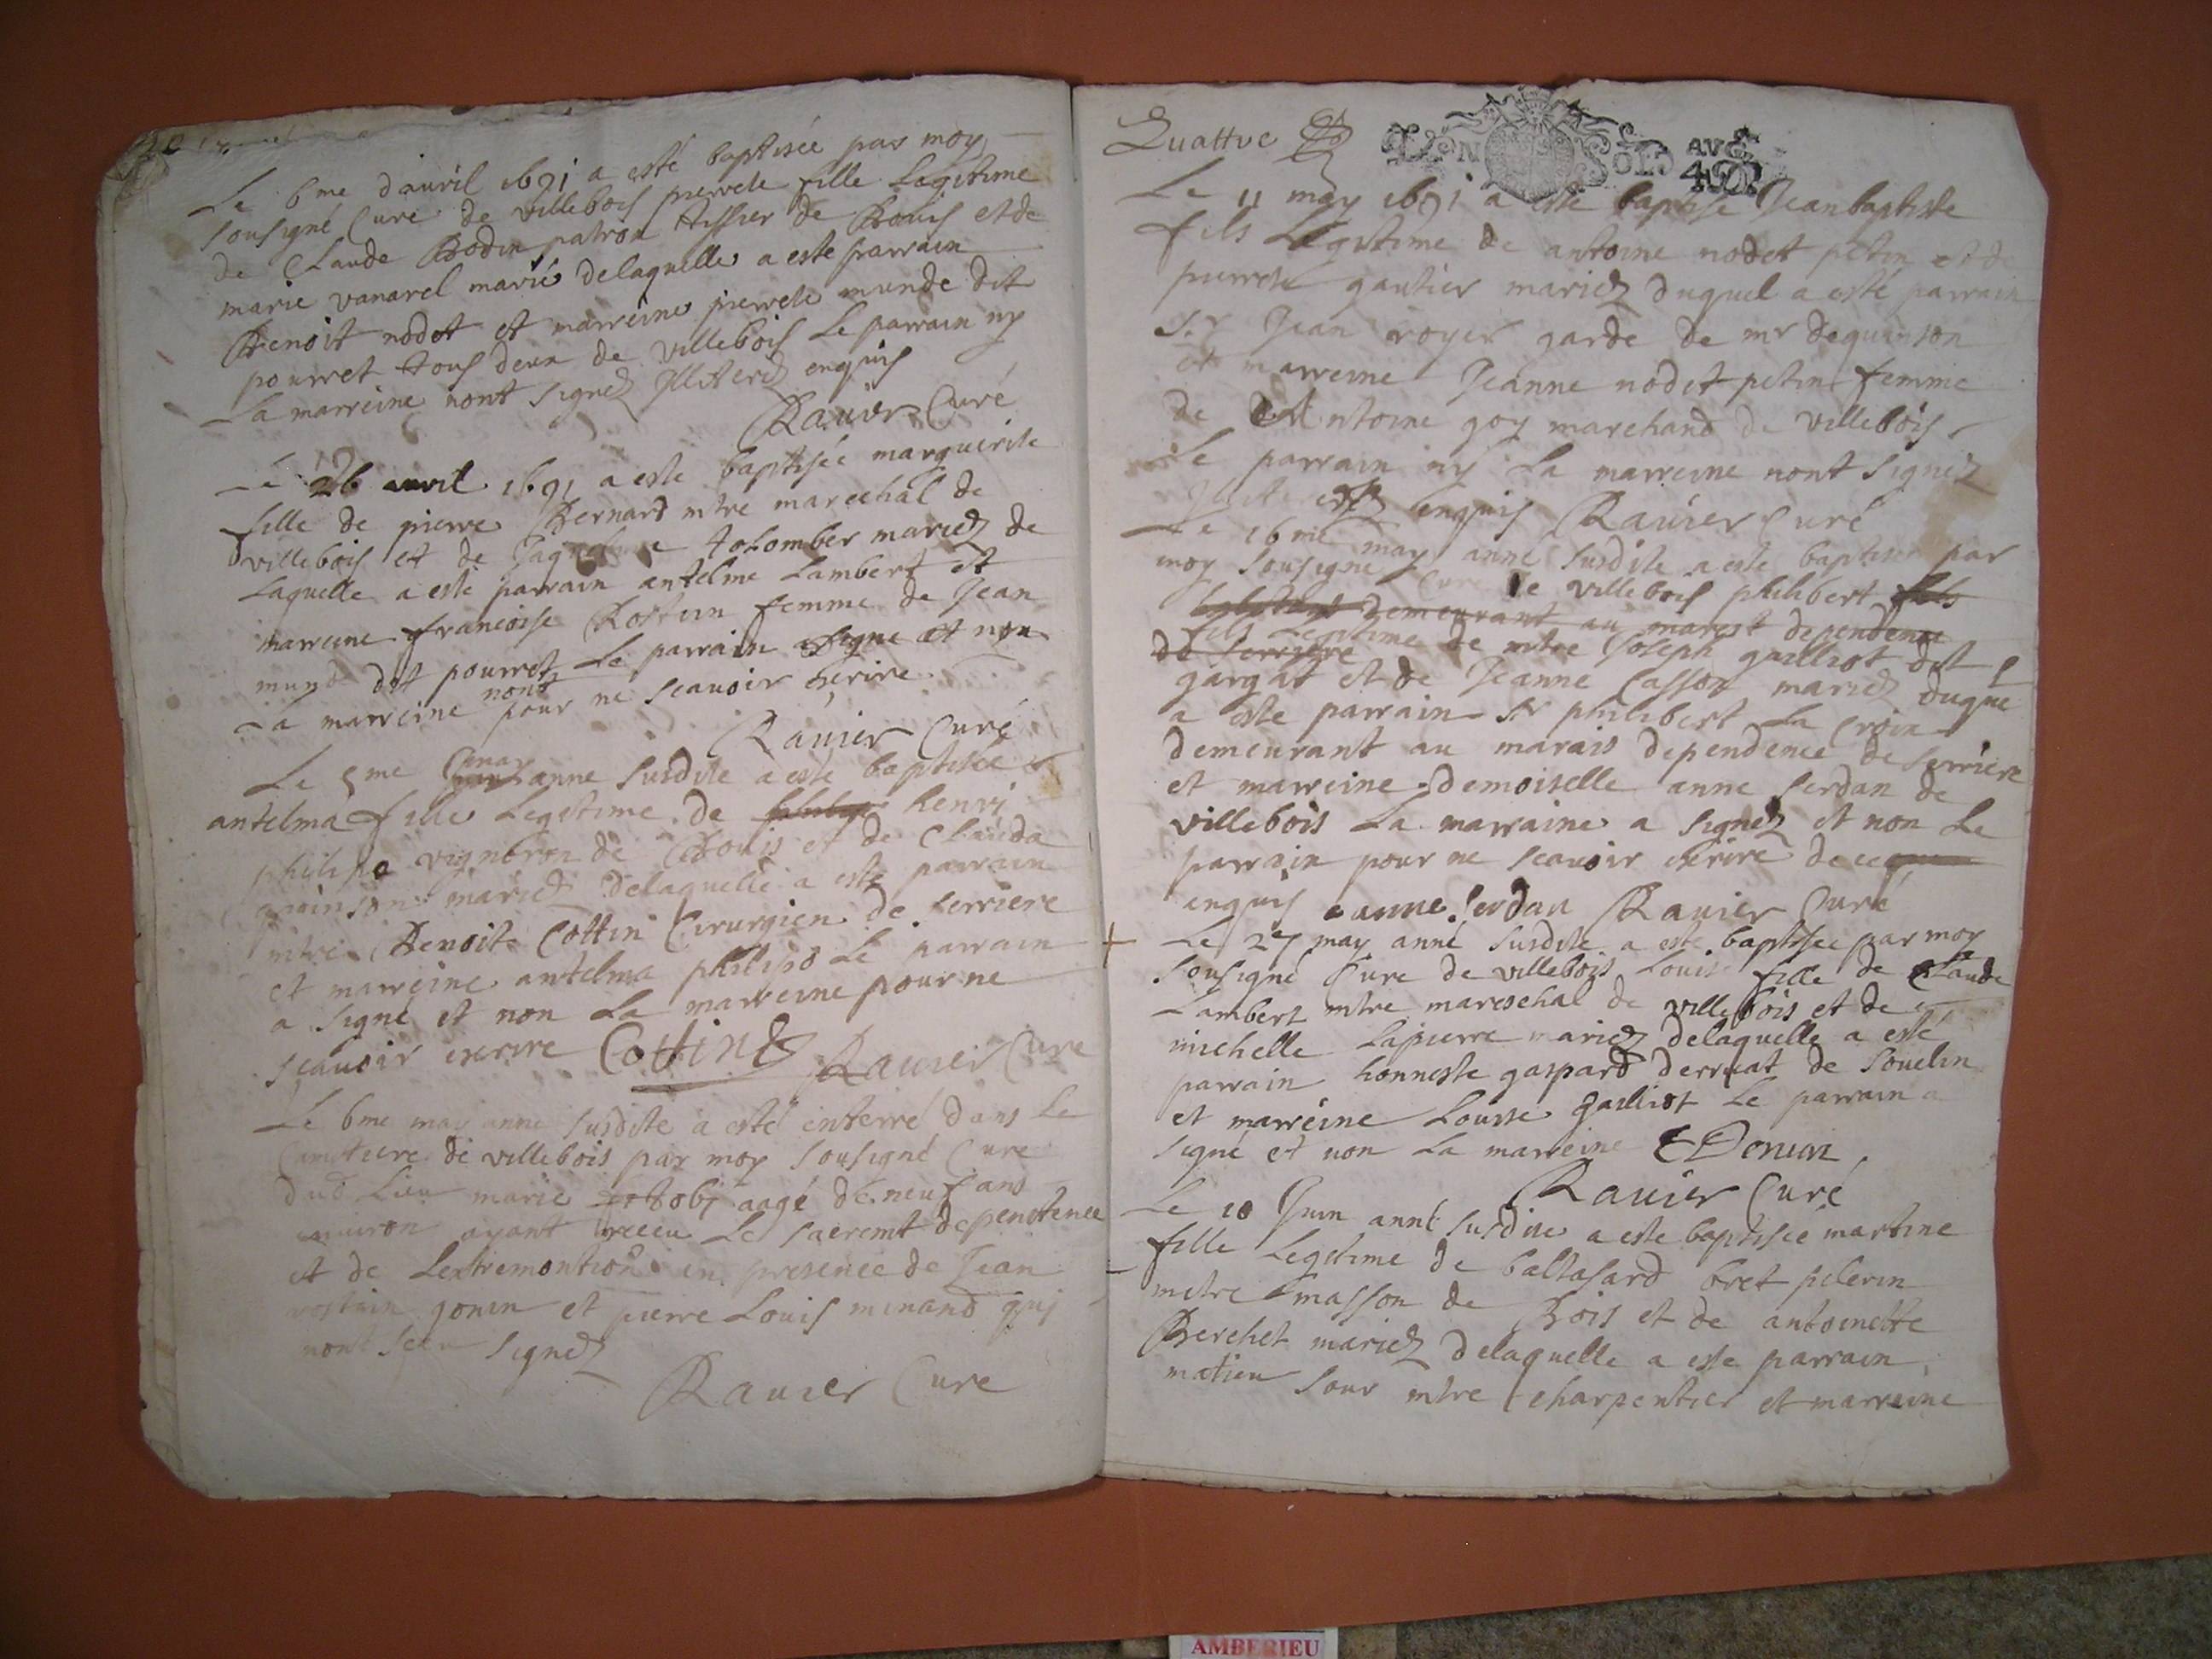 Le 6me dauril 1691 a esté baptisée par moy
sousigné Curé de villebois pierrete fille Legitime
de Claude Bodin patron tissier de Bouis et de
marie vanarel mariés delaquelle a este parrain
Benoit nodet et marreine pierrete munde dit
pourret tous deux de villebois Le parrain ny
La marreine nont signez Illiterez enquis
Rauier Curé
Le 26 auril 1691 a este baptisée marguerite
fille de pierre Bernard mtre marechal de
villebois et de tolomber mariez de
Laquelle a este parrain antelme Lambert et
marreine francoise Rostein femme de Jean
munde dit pourret Le parrain signe et non
La marreine pour ne scauoir ecrire
Rauier Curé
Le 5me may anne susdite a este baptisée
antelma fille Legitime de henri
philipe vigneron de Bouis et de Clauda
quinson mariez delaquelle a este parrain
mtre Benoite Cottin Cirurgien de serriere
et marreine antelma philipo Le parrain
a signé et non La marreine pour ne
scauoir ecrire Cottin Rauier Cure
Le 6me may anne susdite a esté enterré dans Le
Cimitiere de villebois par moy sousigné Cure
dud Lieu marie aagé de neuf ans
enuiron ayant receu Le sacremt de penitence
et de Lextremontion en presence de Jean
rostain gonin et pierre Louis minand qui
nont sceu signez
Rauier Cure
Quattre
LYON SOLS AVG 4 D
Le 11 may 1691 a este baptise Jeanbaptiste
fils Legitime de antoine nodet petin et de
pierrete gautier mariez duquel a esté parrain
Sr Jean royer garde de mr dequinson
et marreine Jeanne nodet petin femme
de Antoine goy marchand de villebois
Le parrain ny La marreine nont signez
Illiterez enquis Rauier Curé
Le 16me may anne susdite a este baptise par
moy sousigné Cure de villebois philibert fils
demeurant au marest dependence
de serriere fils Legitime de mtre Joseph guilliot dit
gargat et de Jeanne Casson mariez duquel
a este parrain Sr philibert La Croix
demeurant au marais dependence de serriere
et marreine demoiselle anne serdan de
villebois La marraine a signez et non Le
parrain pour ne scauoir ecrire de ce
enquis anne serdan Rauier Curé
+ Le 27 may anné susdite a este baptisée par moy
sousigné Cure de villebois Louise fille de Claude
Lambert mtre mareschal de villebois et de
michelle Lapierre mariez delaquelle a esté
parrain honneste gaspard derruat de souclin
et marreine Louise guilliot Le parrain a
signé et non La marreine
Rauier Curé
Le 10 Juin anné susdite a este baptisée martine
fille Legitime de baltasard bret pilerin
mtre masson de Bois et de antoinette
Berchet mariez delaquelle a este parrain
matieu sour mtre charpentier et marreine
AMBERIEU